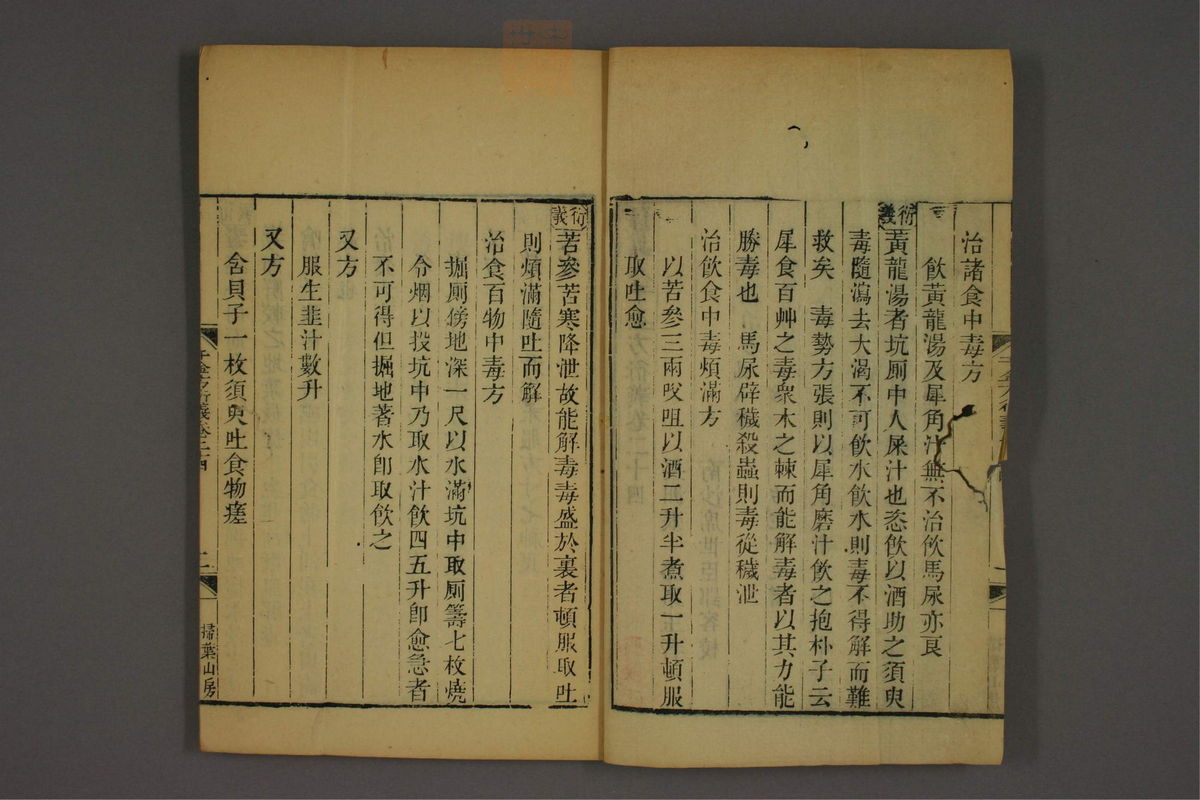 治諸食中毒方
飲黃龍湯及犀角汁無不治飲馬尿亦良
衍義 黃龍湯者坑厠中人屎汁也恣飲以酒助之須臾
毒隨瀉去大渴不可飲水飲水則毒不得解而難
救矣　毒勢方張則以犀角磨汁飲之抱朴子云
犀食百艸之毒衆木之棘而能解毒者以其力能
勝毒也　馬尿辟穢殺蟲則毒從穢泄
治飲食中毒煩滿方
以苦參三兩㕮咀以酒二升半煮取一升頓服
取吐愈
衍義 苦參苦寒降泄故能解毒毒盛於裏者頓服取吐
則煩滿隨吐而解
治食百物中毒方
掘厠傍地深一尺以水滿坑中取厠籌七枚燒
令烟以投坑中乃取水汁飲四五升卽愈急者
不可得但掘地著水卽取飲之
又方
服生韭汁數升
又方
含貝子一枚須臾吐食物瘥
千金方衍義卷二十四
二
掃葉山房